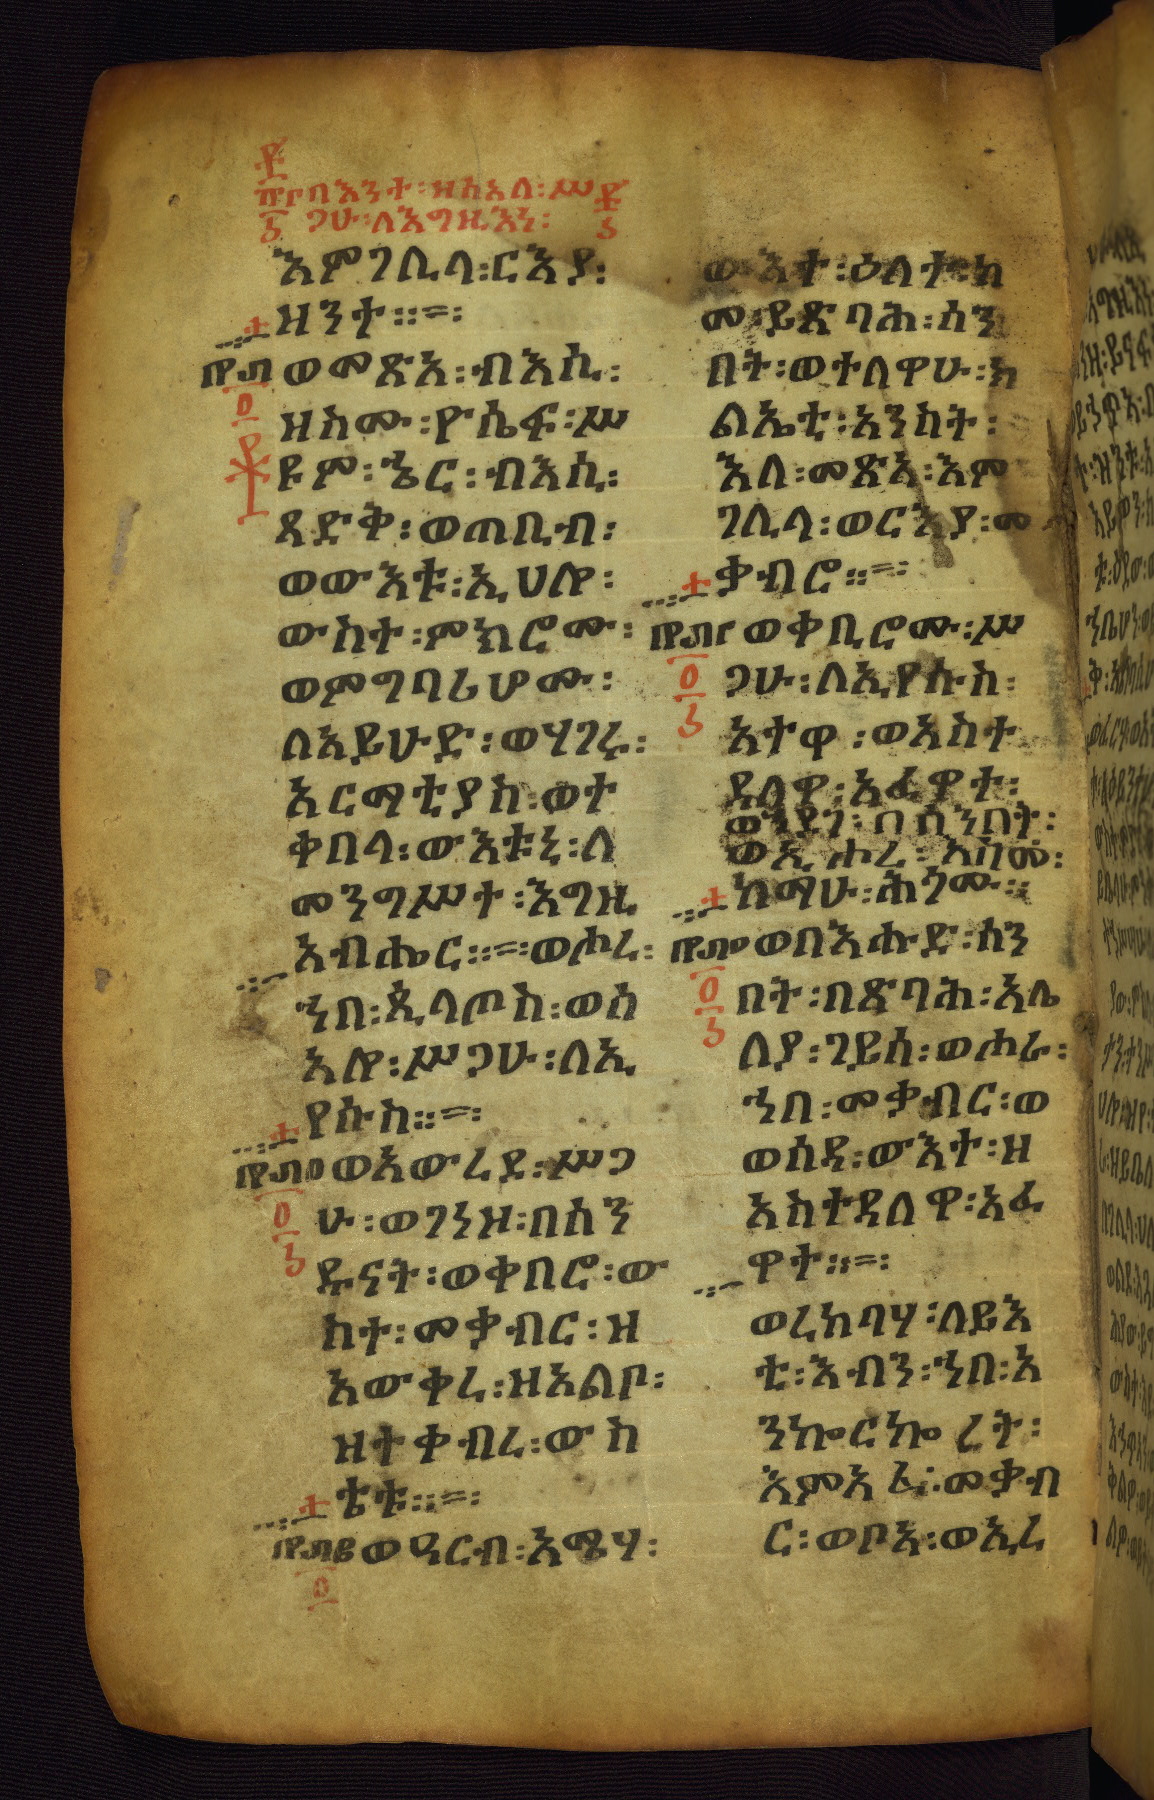 በእንተ፡ዘሰአለ፡ሥ
ጋሁ፡ለእግዚእነ፡
እምገሊላ፡ርእያ፡
ዝንተ።=፡
ወመጽአ፡ብእሲ፡
ዘስሙ፡ዮሴፍ፡ሥ
ዩም፡ኄር፡ብእሲ፡
ጻድቅ፡ወጠቢብ፡
ወውእቱ፡ኢሀሎ፡
ውስተ፡ምክሮሙ፡
ወምግባሪሆሙ፡
ለአይሁድ፡ወሃገሩ፡
አርማቲያስ፡ወተ
ቀበላ፡ውእቱኒ፡ለ
መንግሥተ፡እግዚ
አብሔር።=፡ወሖረ፡
ኀበ፡ጲላጦስ፡ወሰ
አሎ፡ሥጋሁ፡ለኢ
የሱስ።=፡
ወአውረደ፡ሥጋ
ሁ፡ወገነዞ፡በሰን
ዱናት፡ወቀበሮ፡ው
ስተ፡መቃብር፡ዘ
አውቀረ፡ዘአልቦ፡
ዘተቀብረ፡ውስ
ቴቱ።=፡
ወዓርብ፡አሜሃ፡
ውእተ፡ዕለተ፡ከ
መ፡ይጽባሕ፡ሰን
በት፡ወተለዋሁ፡ክ
ልኤቲ፡አንስት፡
እለ፡መጽአ፡እም
ገሊላ፡ወርእያ፡መ
ቃብሮ።=፡
ወቀቢሮሙ፡ሥ
ጋሁ፡ለኢየሱስ፡
አተዋ፡ወአስተ
ደለዋ፡አፈዋተ፡
ወኀደገ፡በሰንበት፡
ወኢሖረ፡እስመ፡
ከማሁ፡ሕጎሙ።
ወበእሑድ፡ሰን
በት፡በጽባሕ፡እሌ
ሊያ፡ገይሰ፡ወሖራ፡
ኀበ፡መቃብር፡ወ
ወሰዳ፡ውእተ፡ዘ
አስተዳለዋ፡አፈ
ዋተ።=፡
ወረከባሃ፡ለይእ
ቲ፡እብን፡ኀበ፡አ
ንኰርኰረት፡
እምአፈ፡መቃብ
ር፡ወቦአ፡ወኢረ